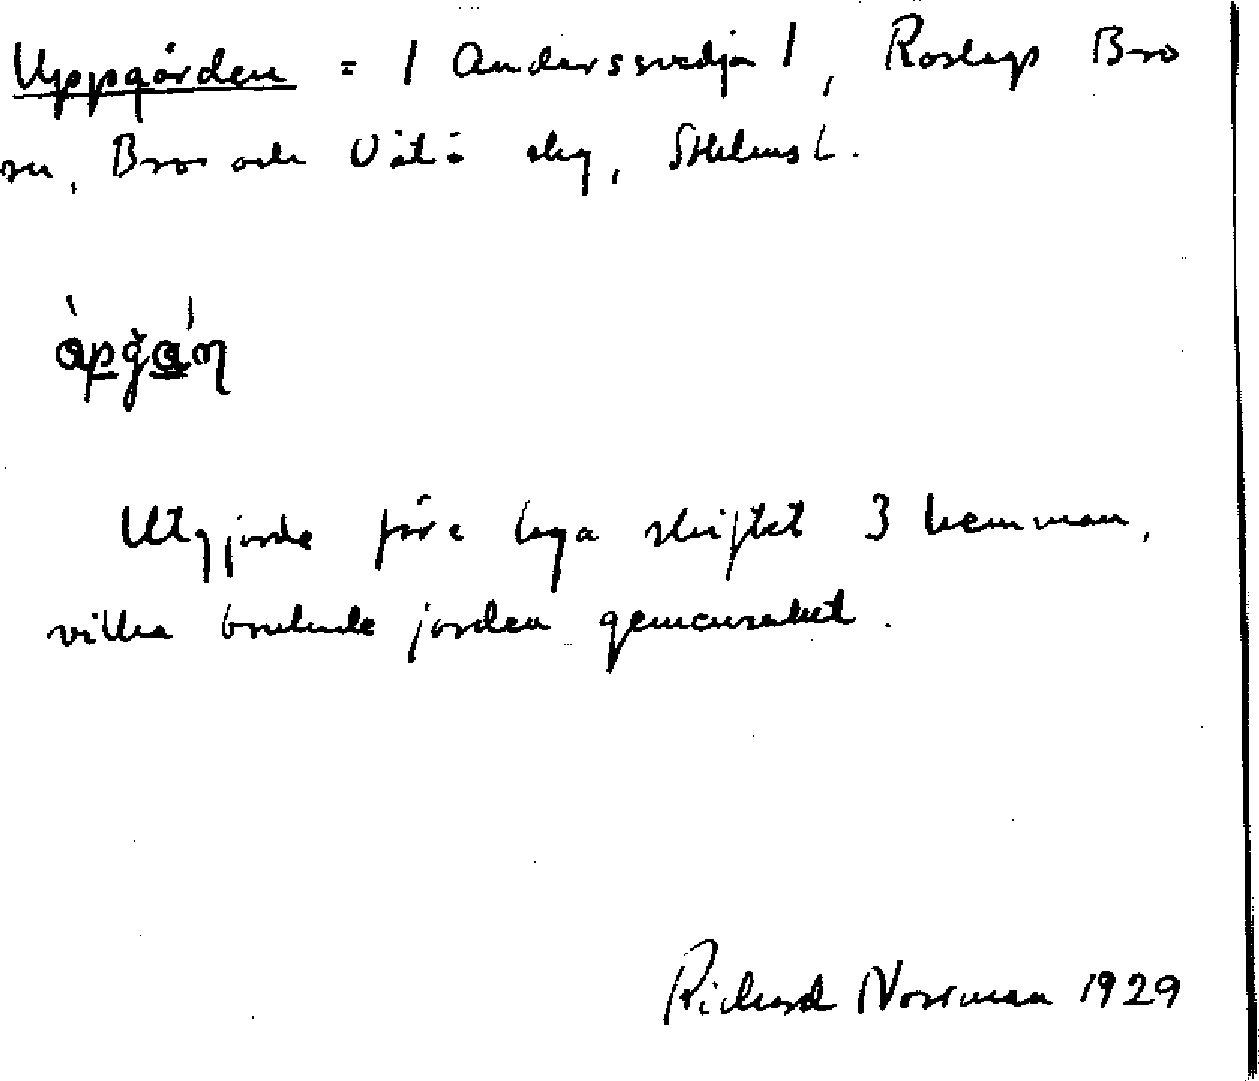 Uppgården = 1 Anderssvedja 1, Roslags Bro
sn, Bro och Vätö skg, Sthlms l.
Utgjorde före laga skiftet 3 hemman,
vilka brukade jorden gemensamt.
Richard Norrman 1929